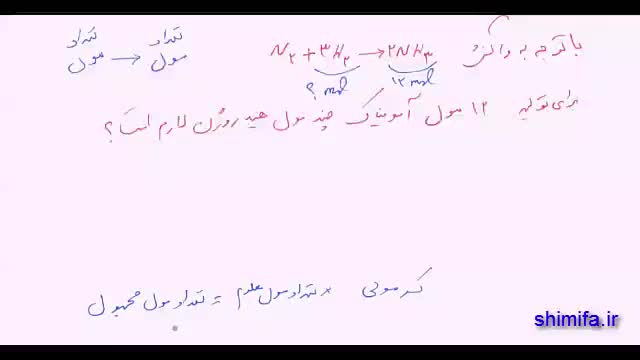 با توجه به واکنش N₂ + ۳H₂ → ۲NH₃
تعداد مول → تعداد مول
? mol ۱۲ mol
برای تولید ۱۲ مول آمونیاک چند مول هیدروژن لازم است؟
کسر مولی × تعداد مول معلوم = تعداد مول مجهول
shimifa.ir